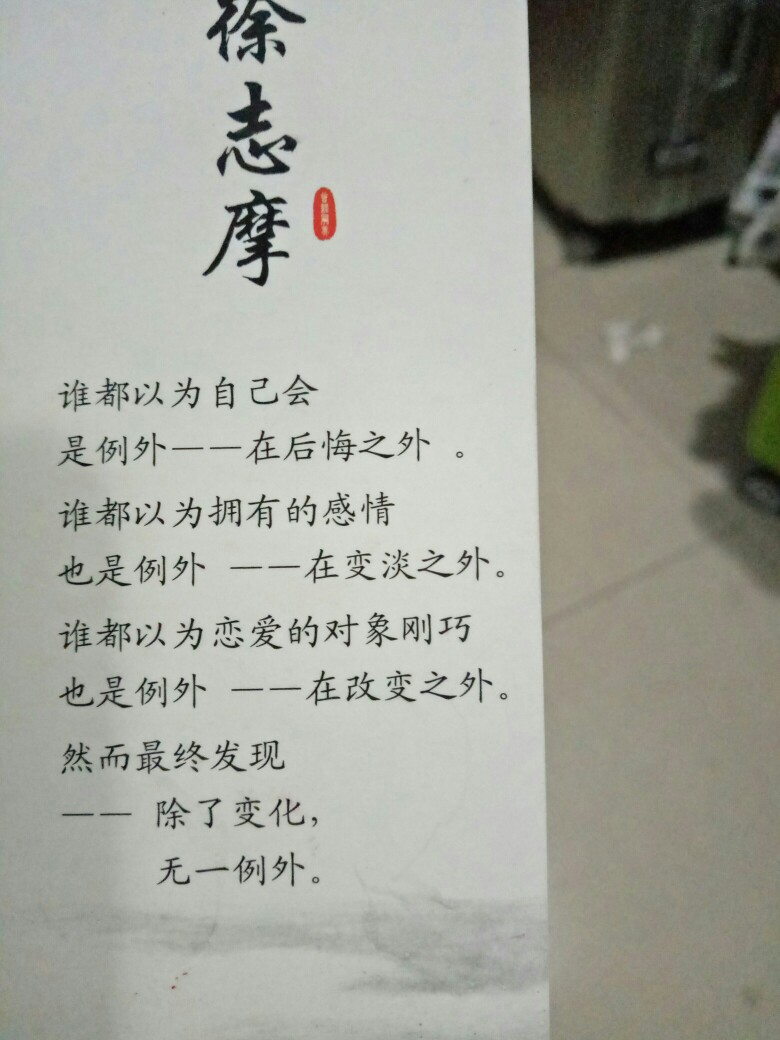 徐志摩
谁都以为自己会
是例外——在后悔之外 。
谁都以为拥有的感情
也是例外 ——在变淡之外。
谁都以为恋爱的对象刚巧
也是例外 ——在改变之外。
然而最终发现
—— 除了变化，
无一例外。